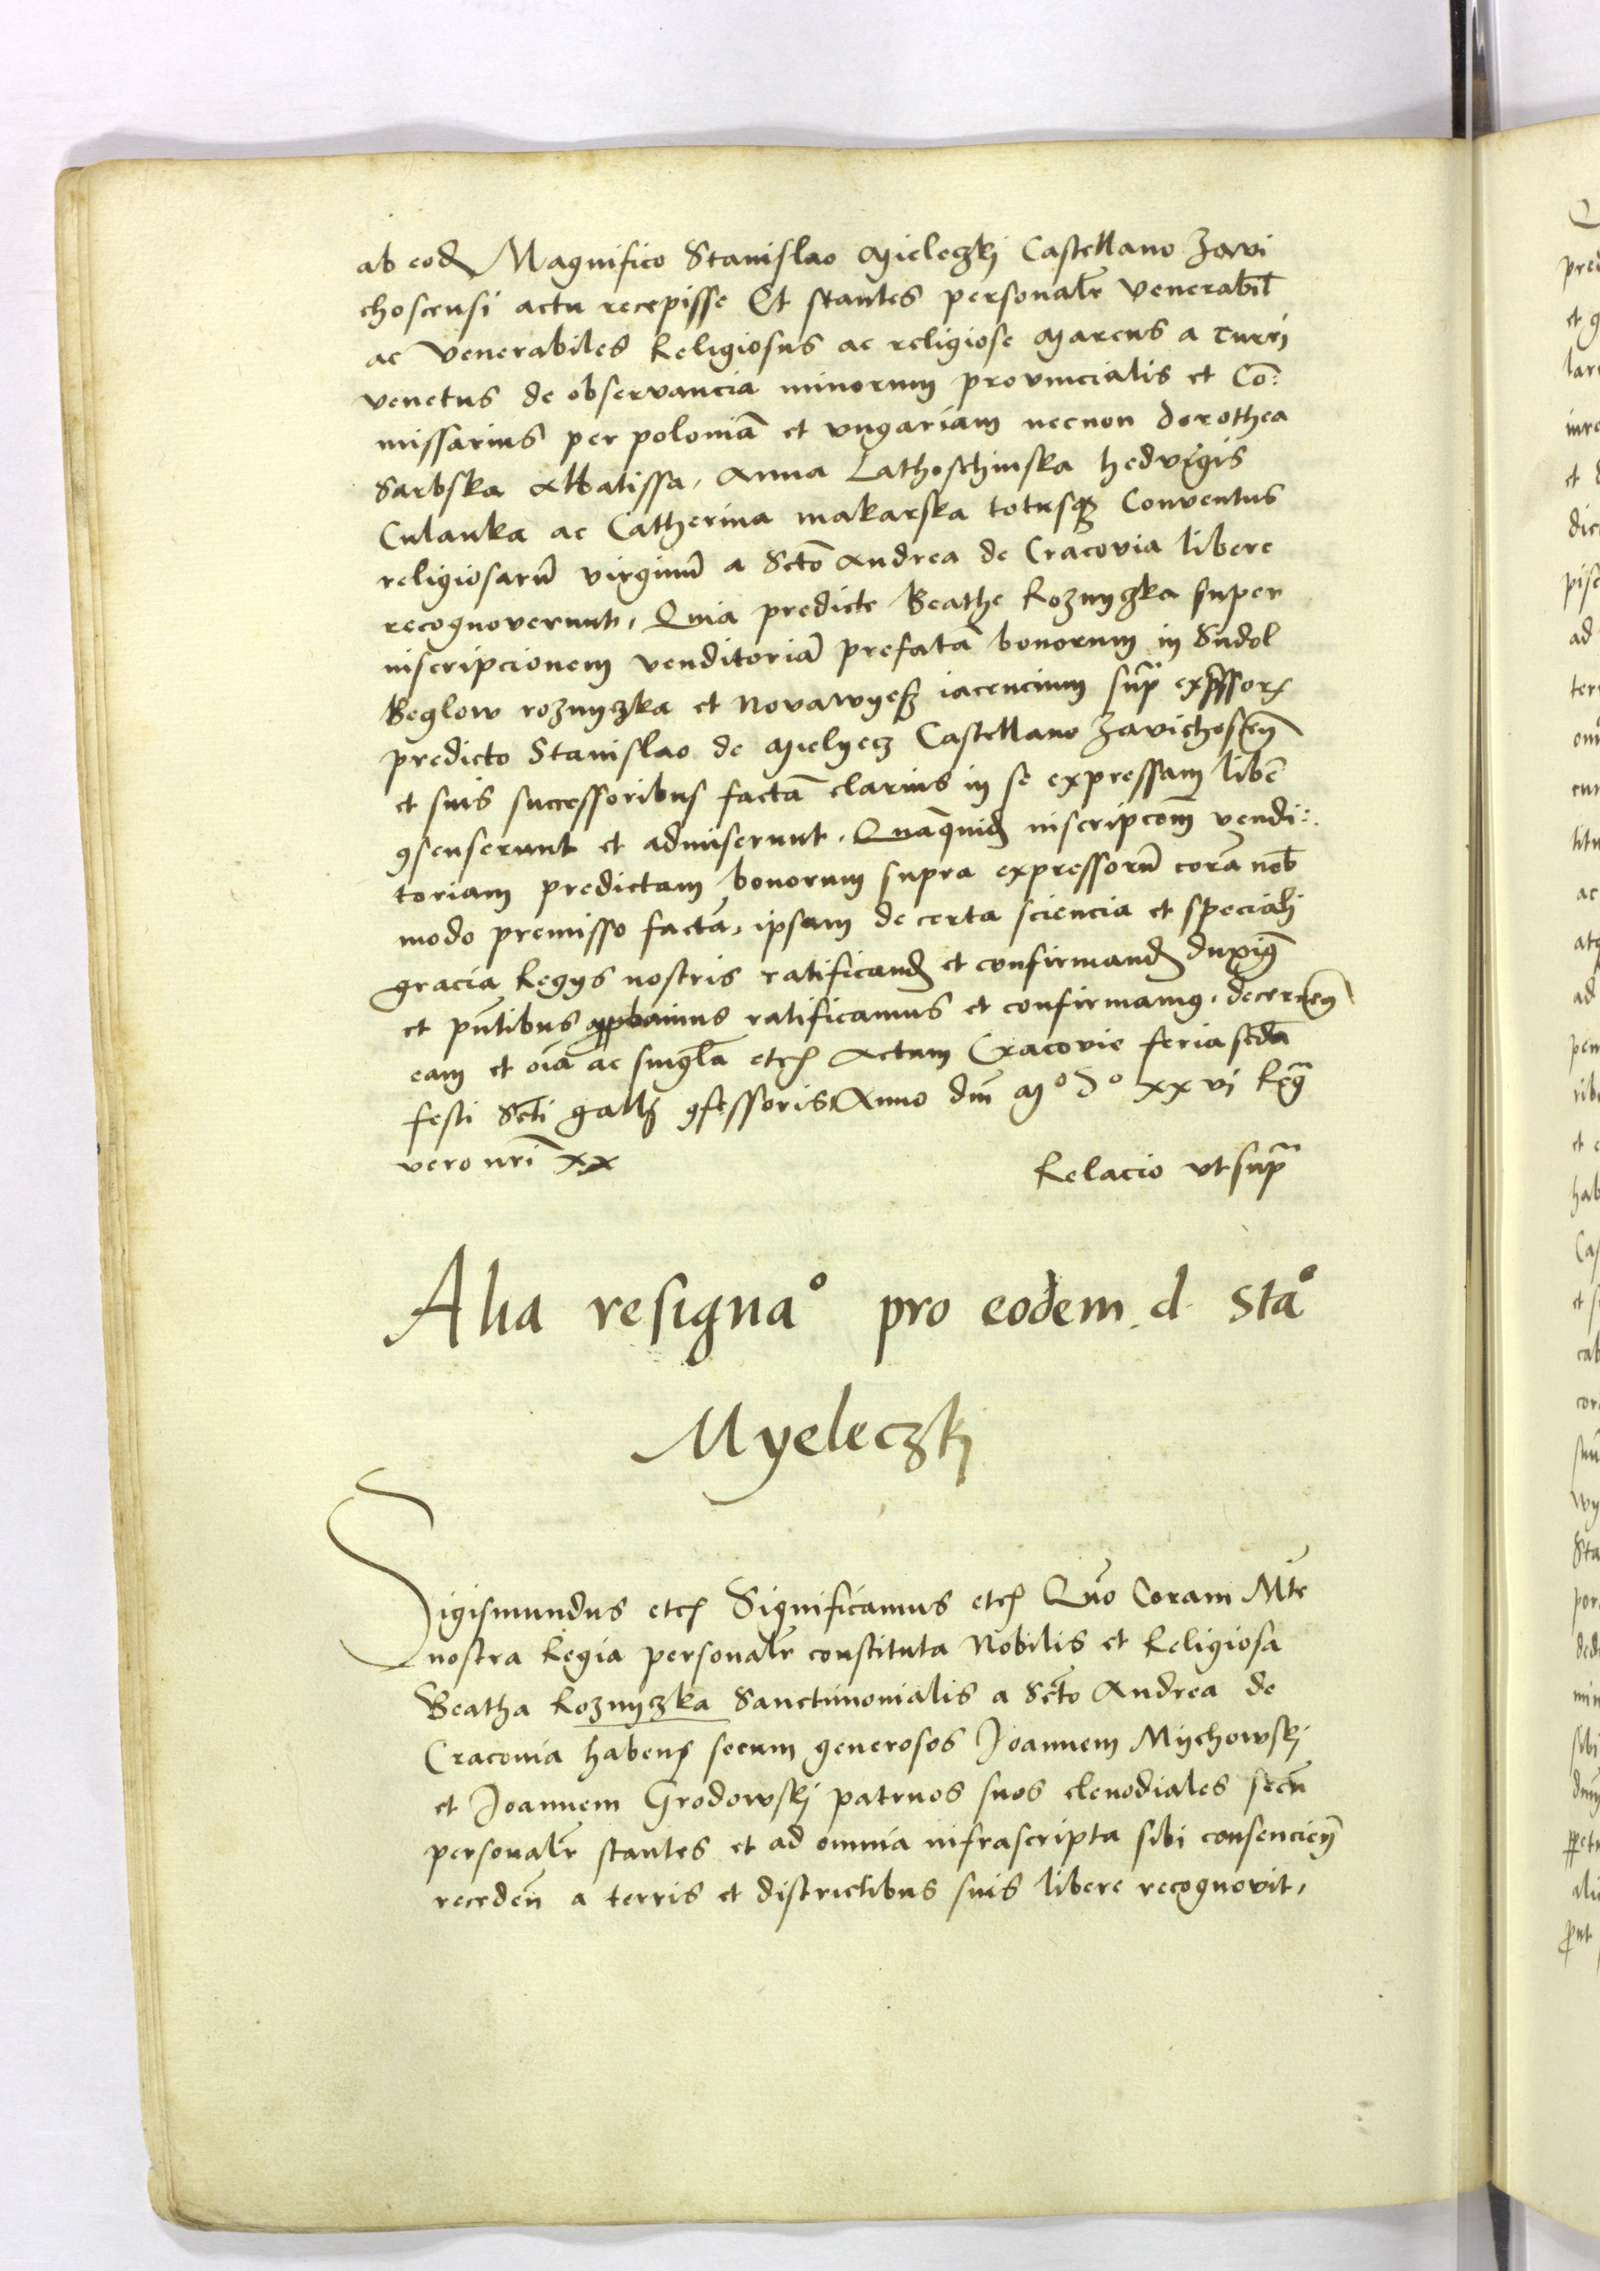 ab eod Magnifico Stanislao Mieleczkj Castellano Zavi
choscensi actu recepisse Et stantes personalr Venerabil
ac Venerabiles Religiosus ac religiose Marcus a Turri
venetus de observancia minorum provincialis et Cõ:
missarius per poloniã et vngariam necnon dorothea
Sarbska Abbatissa, Anna Lathoschinska hedvigis
Culanka ac Catherina makarska totusqz Conventus
religiosarũ virginũ a Sctõ Andrea de Cracovia libere
recognoverunt, Quia predicte Beathe Roznyczka super
inscripcionem venditoriã prefatã bonorum in Sudol
Beglow roznyczka et Novawyesz iacencium sup̃
predicto Stanislao de Mielyecz Castellano Zavichoscen̄
et suis successoribus factã clarius in se expressam libẽ
ꝯsenserunt et admiserunt. Quãquid inscripcom̃ vendi:
toriam predictam bonorum supra expressorũ corã nob̃
modo premisso factã, ipsam de certa sciencia et speciali
gracia Regys nostris ratificand et confirmand duxim̃
et pñtibus ratificamus et confirmamꝰ. decernen̄
eam et oĩa ac singl̃a etcꝭ Actum Cracovie feria scdã
festi Sctĩ gallj ꝯfessoris, Anno dnĩ Mº Dº xxvi Regñ
vero nrĩ xx
Relacio vt sup̃
Alia resignaº pro eodem d. Staº
Myeleczkj
Sigismundus etcꝭ Significamus etcꝭ Quõ Coram Mte
nostra Regia personalr constituta Nobilis et Religiosa
Beatha Roznyczka Sanctimonialis a Sctõ Andrea de
Cracovia habens secum generosos Joannem Mychowskj
et Joannem Grodowskj patruos suos clenodiales secũ
personalr stantes et ad omnia infrascripta sibi consencien̄
receden̄ a terris et districtibus suis libere recognovit,